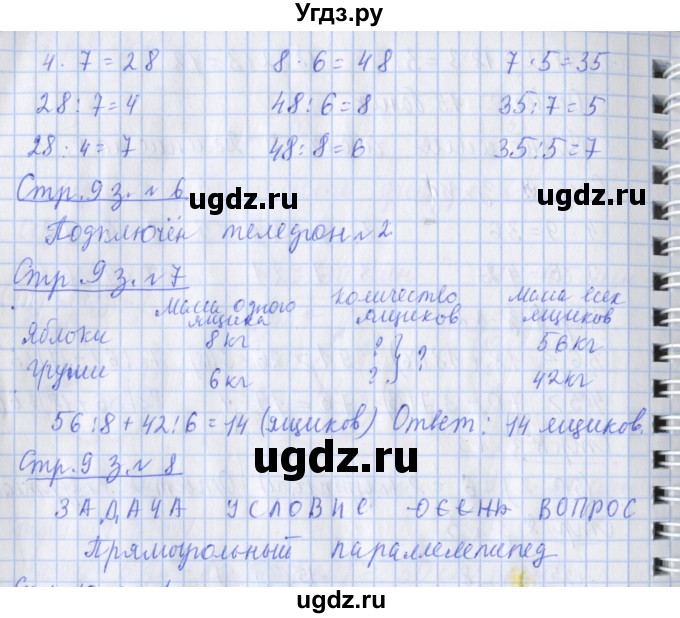 Угдз.ру
4 · 7 = 28 8 · 6 = 48 7 · 5 = 35
28 : 7 = 4 48 : 6 = 8 35 : 7 = 5
28 : 4 = 7 48 : 8 = 6 35 : 5 = 7
Стр. 9 з. № 6
ugdz.ru ugdz.ru
Подключён телефон № 2
Стр. 9 з. № 7
Масса одного ящика Количество ящиков Масса всех ящиков
Яблоки 8 кг ? } ? 56 кг
Груши 6 кг ? 42 кг
56 : 8 + 42 : 6 = 14 (ящиков) Ответ: 14 ящиков.
ugdz.ru
Стр. 9 з. № 8
ЗАДАЧА УСЛОВИЕ ВОПРОС
Прямоугольный параллелепипед
ugdz.ru
ugdz.ru